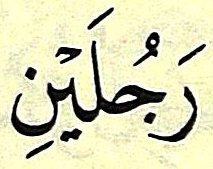 رَجُلَيْنِ